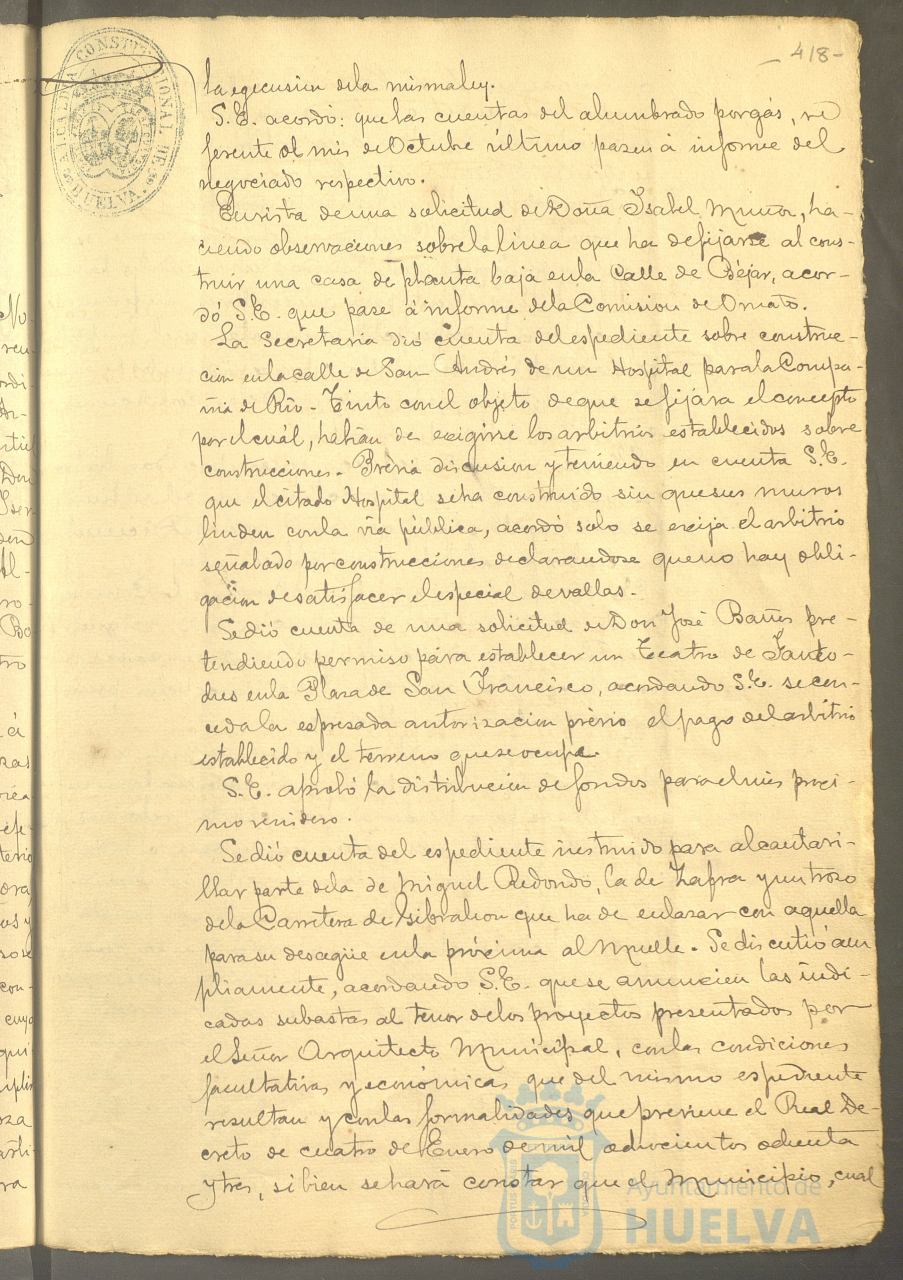 - 418 -
ALCALDIA CONSTITUCIONAL DE HUELVA.
la egecusion dela misma ley.
S.E. acordó: que las cuentas del alumbrado por gas, re
ferente al mes de Octubre último pasen á informe del
negociado respectivo.
En vista de una solicitud de Doña Isabel Muñoz, ha-
ciendo observaciones sobre la linea que ha de fijarse al cons-
truir una casa de planta baja en la Calle de Béjar, acor-
dó S.E. que pase á informe de la Comision de Ornato.
La Secretaria dió cuenta del espediente sobre construc-
cion en la calle de San Andrés de un Hospital para la Compa-
ñia de Rio-Tinto con el objeto de que se fijára el concepto
por el cuál, habian de exigirse los arbitrios establecidos sobre
construcciones. Prévia discusion y teniendo en cuenta S.E.
que el citado Hospital se ha construido sin que sus muros
linden con la via pública, acordó solo se exija el arbitrio
señalado por construcciones declarandose que no hay obli-
gacion de satisfacer el especial de vallas.
Se dió cuenta de una solicitud de Don José Baños pre-
tendiendo permiso para establecer un Teatro de Fanto-
ches en la Plaza de San Francisco, acordando S.E. se con-
ceda la espresada autorizacion prévio el pago del arbitrio
establecido y el terreno que se ocupe.
S.E. aprobó la distribucion de fondos para el mes proxi-
mo venidero.
Se dió cuenta del espediente instruido para alcantari-
llar parte de la de Miguel Redondo, la de Zafra y un trozo
de la Carretera de Gibraleon que ha de enlazar con aquella
para su desagüe en la próxima al Muelle. Se discutió am
pliamente, acordando S.E. que se anuncien las indi-
cadas subastas al tenor de los proyectos presentados por
el Señor Arquitecto Municipal, con las condiciones
facultativas y económicas que del mismo espediente
resultan y con las formalidades que previene el Real De-
creto de cuatro de Enero de mil ochocientos ochenta
y tres, si bien se hará constar que el Municipio, cual
Ayuntamiento de
HUELVA